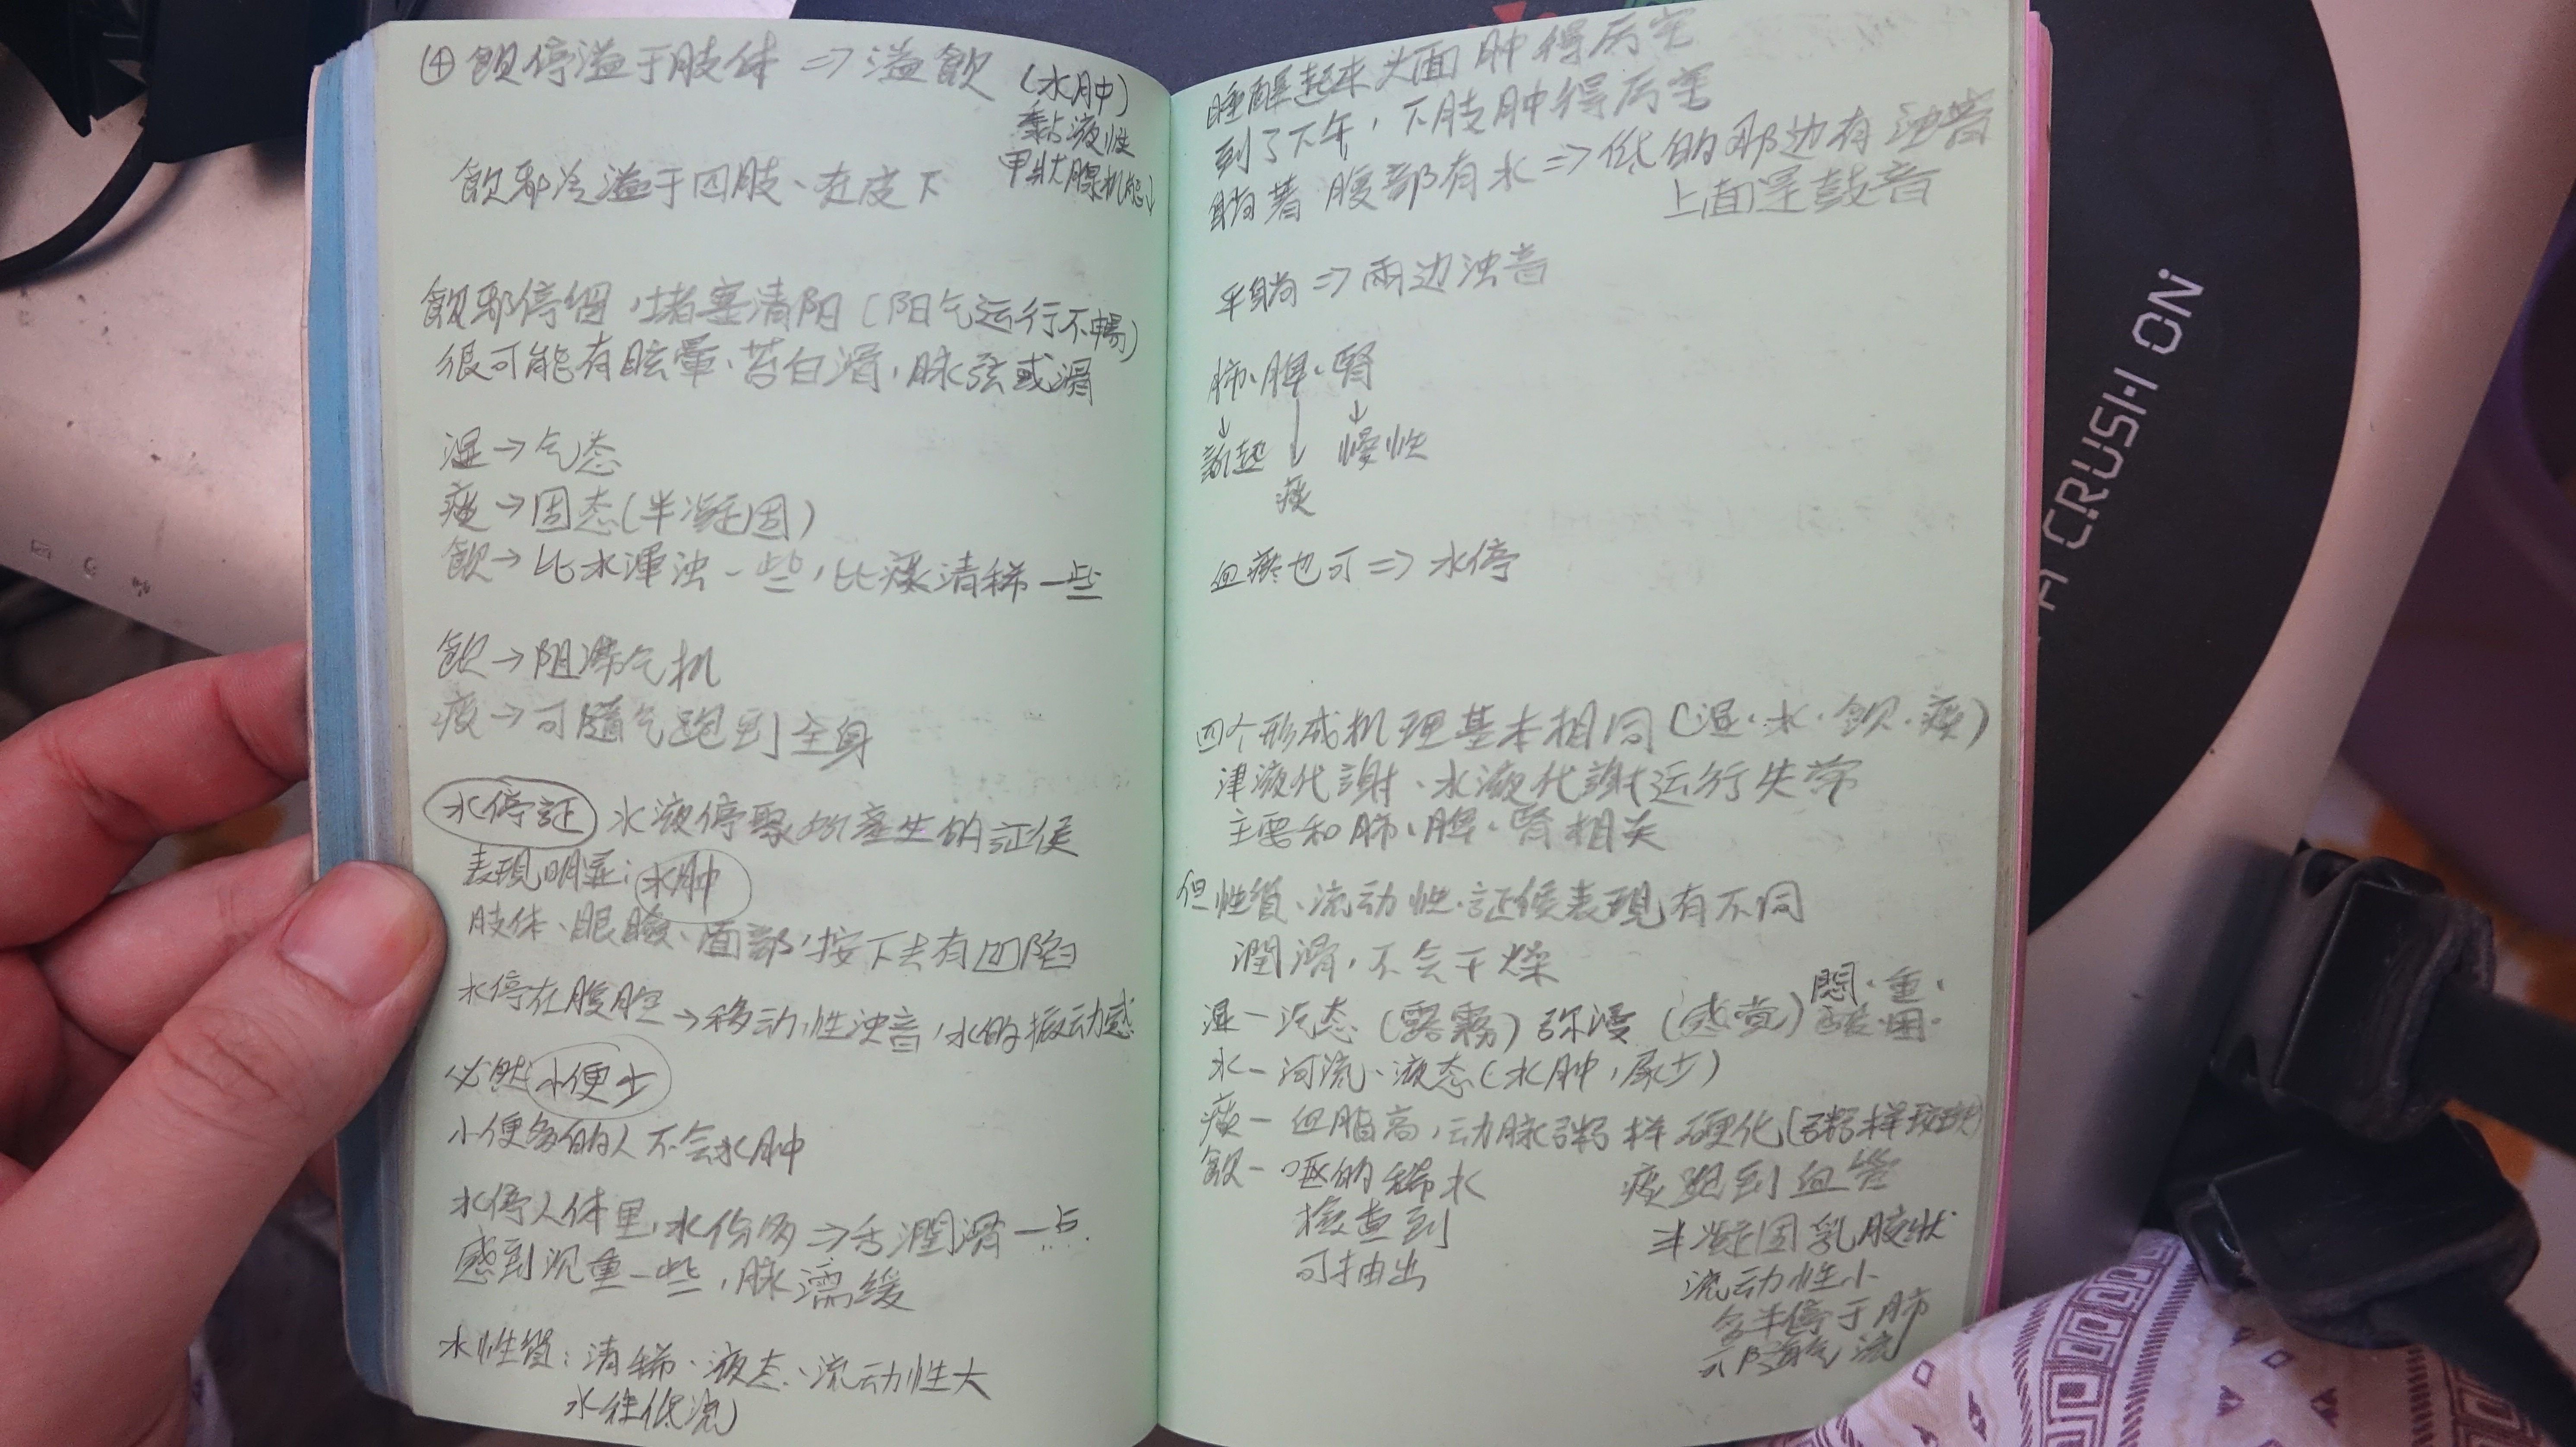 ④飲停溢于肢体 ⇒ 溢飲 (水肿)
黏液性
甲狀腺机能↓
飲邪冷溢于四肢、在皮下
飲邪停個,堵塞清阳(阳气运行不暢)
很可能有眩暈、苔白滑,脉弦或滑
湿→气态
痰→固态(半凝固)
飲→比水渾浊一些,比痰清稀一些
飲→阻滞气机
痰→可隨气跑到全身
水停証 水液停聚所產生的証侯
表現明显:水肿
肢体、眼瞼、面部,按下去有凹陷
水停在腹腔→移动性浊音,水的振动感
必然小便少
小便多的人不会水肿
水停人体里,水份多⇒舌潤滑一点
感到沉重一些,脉濡缓
水性質:清稀、液态、流动性大
水往低流
睡醒起来头面肿得厉害
到了下午,下肢肿得厉害
躺著腹部有水⇒低的那边有浊音
上面是鼓音
平躺⇒兩边浊音
肺、脾、腎
↓ ↓ ↓
新起 慢性
痰
血瘀也可⇒水停
四个形成机理基本相同(湿·水·飲·痰)
津液代謝、水液代謝运行失常
主要和肺、脾、腎相关
但性質、流动性、証侯表現有不同
潤滑,不会干燥
湿—汽态(露霧)弥漫(感覚)悶·重·
酸·困·
水—河流、液态(水肿,尿少)
痰—血脂高,动脉粥样硬化(粥样斑块)
飲—呕的稀水 痰跑到血管
檢查到 半凝固乳胶状
可抽出 流动性小
多半停于肺
气流
A CRUSH ON